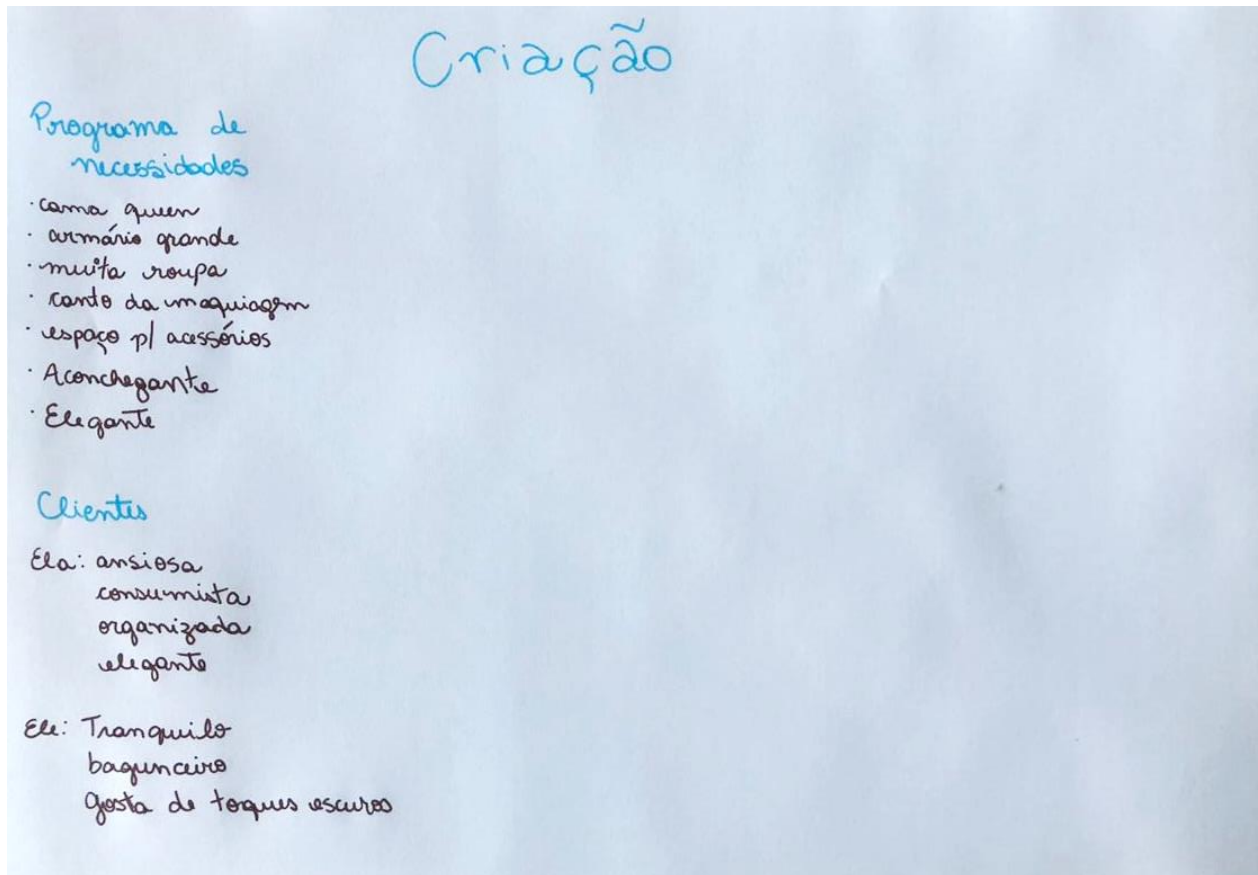 Criação
Programa de
necessidades
· cama queen
· armário grande
· muita roupa
· canto da maquiagem
· espaço p/ acessórios
· Aconchegante
· Elegante
Clientes
Ela: ansiosa
consumista
organizada
elegante
Ele: Tranquilo
bagunceiro
gosta de toques escuros